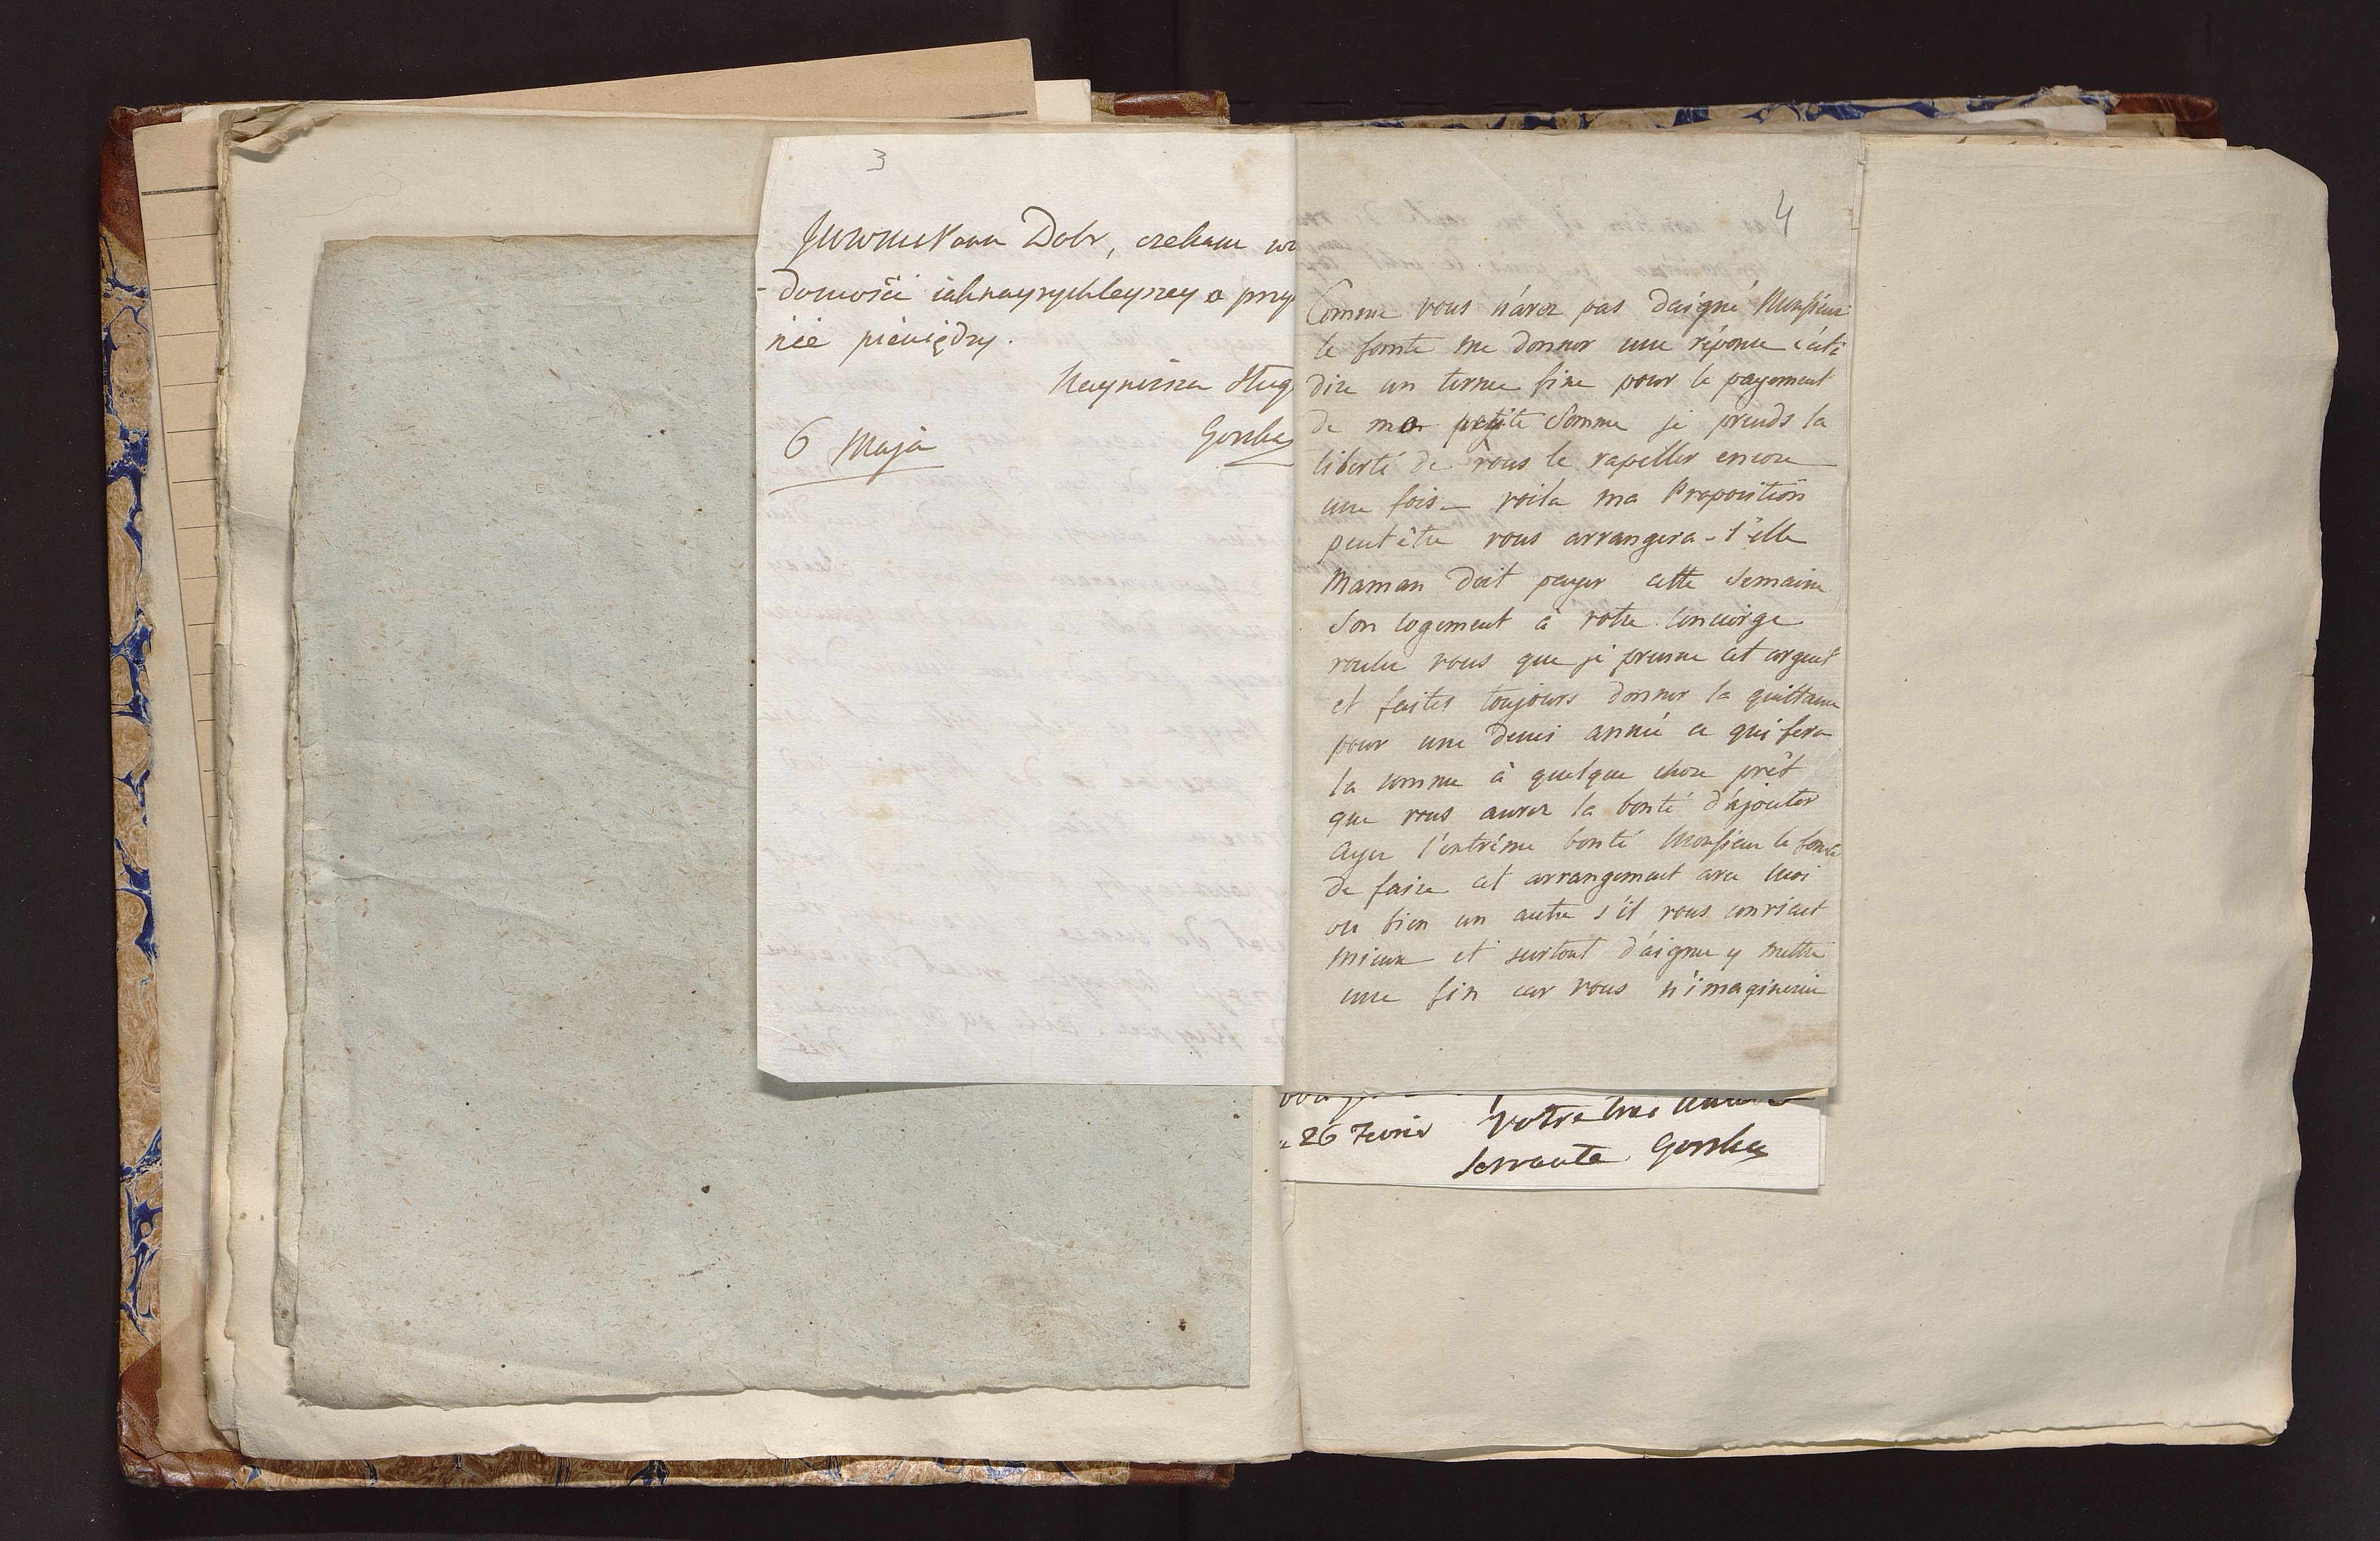 3
Dobr, czekam
domości iaknayrychleyszey o przy
nie pieniędzy.
Nayniższa Sług
6 Maja Gorska
4
Comme vous n'avez pas daigné Monsieur
le Comte me donner une réponse c'est à
dire un terme fixe pour le payement
de ma petite Somme je prends la
liberté de vous le rapeller encore
une fois – voila ma Proposition
peut être vous arrangera-t'elle
Maman doit payer cette Semaine
Son logement à votre Concierge
voulez vous que je prenne cet argent
et faites toujours donner la quittance
pour une demi année ce qui fera
la somme à quelque chose prêt
que vous aurez la bonté d'ajouter
Ayez l'extrême bonté Monsieur le Comte
de faire cet arrangement avec moi
ou bien un autre s'il vous convient
mieux et surtout d'aignez y mettre
une fin car vous n'imagineriez
26 Fevrier Votre
Servante Gorska